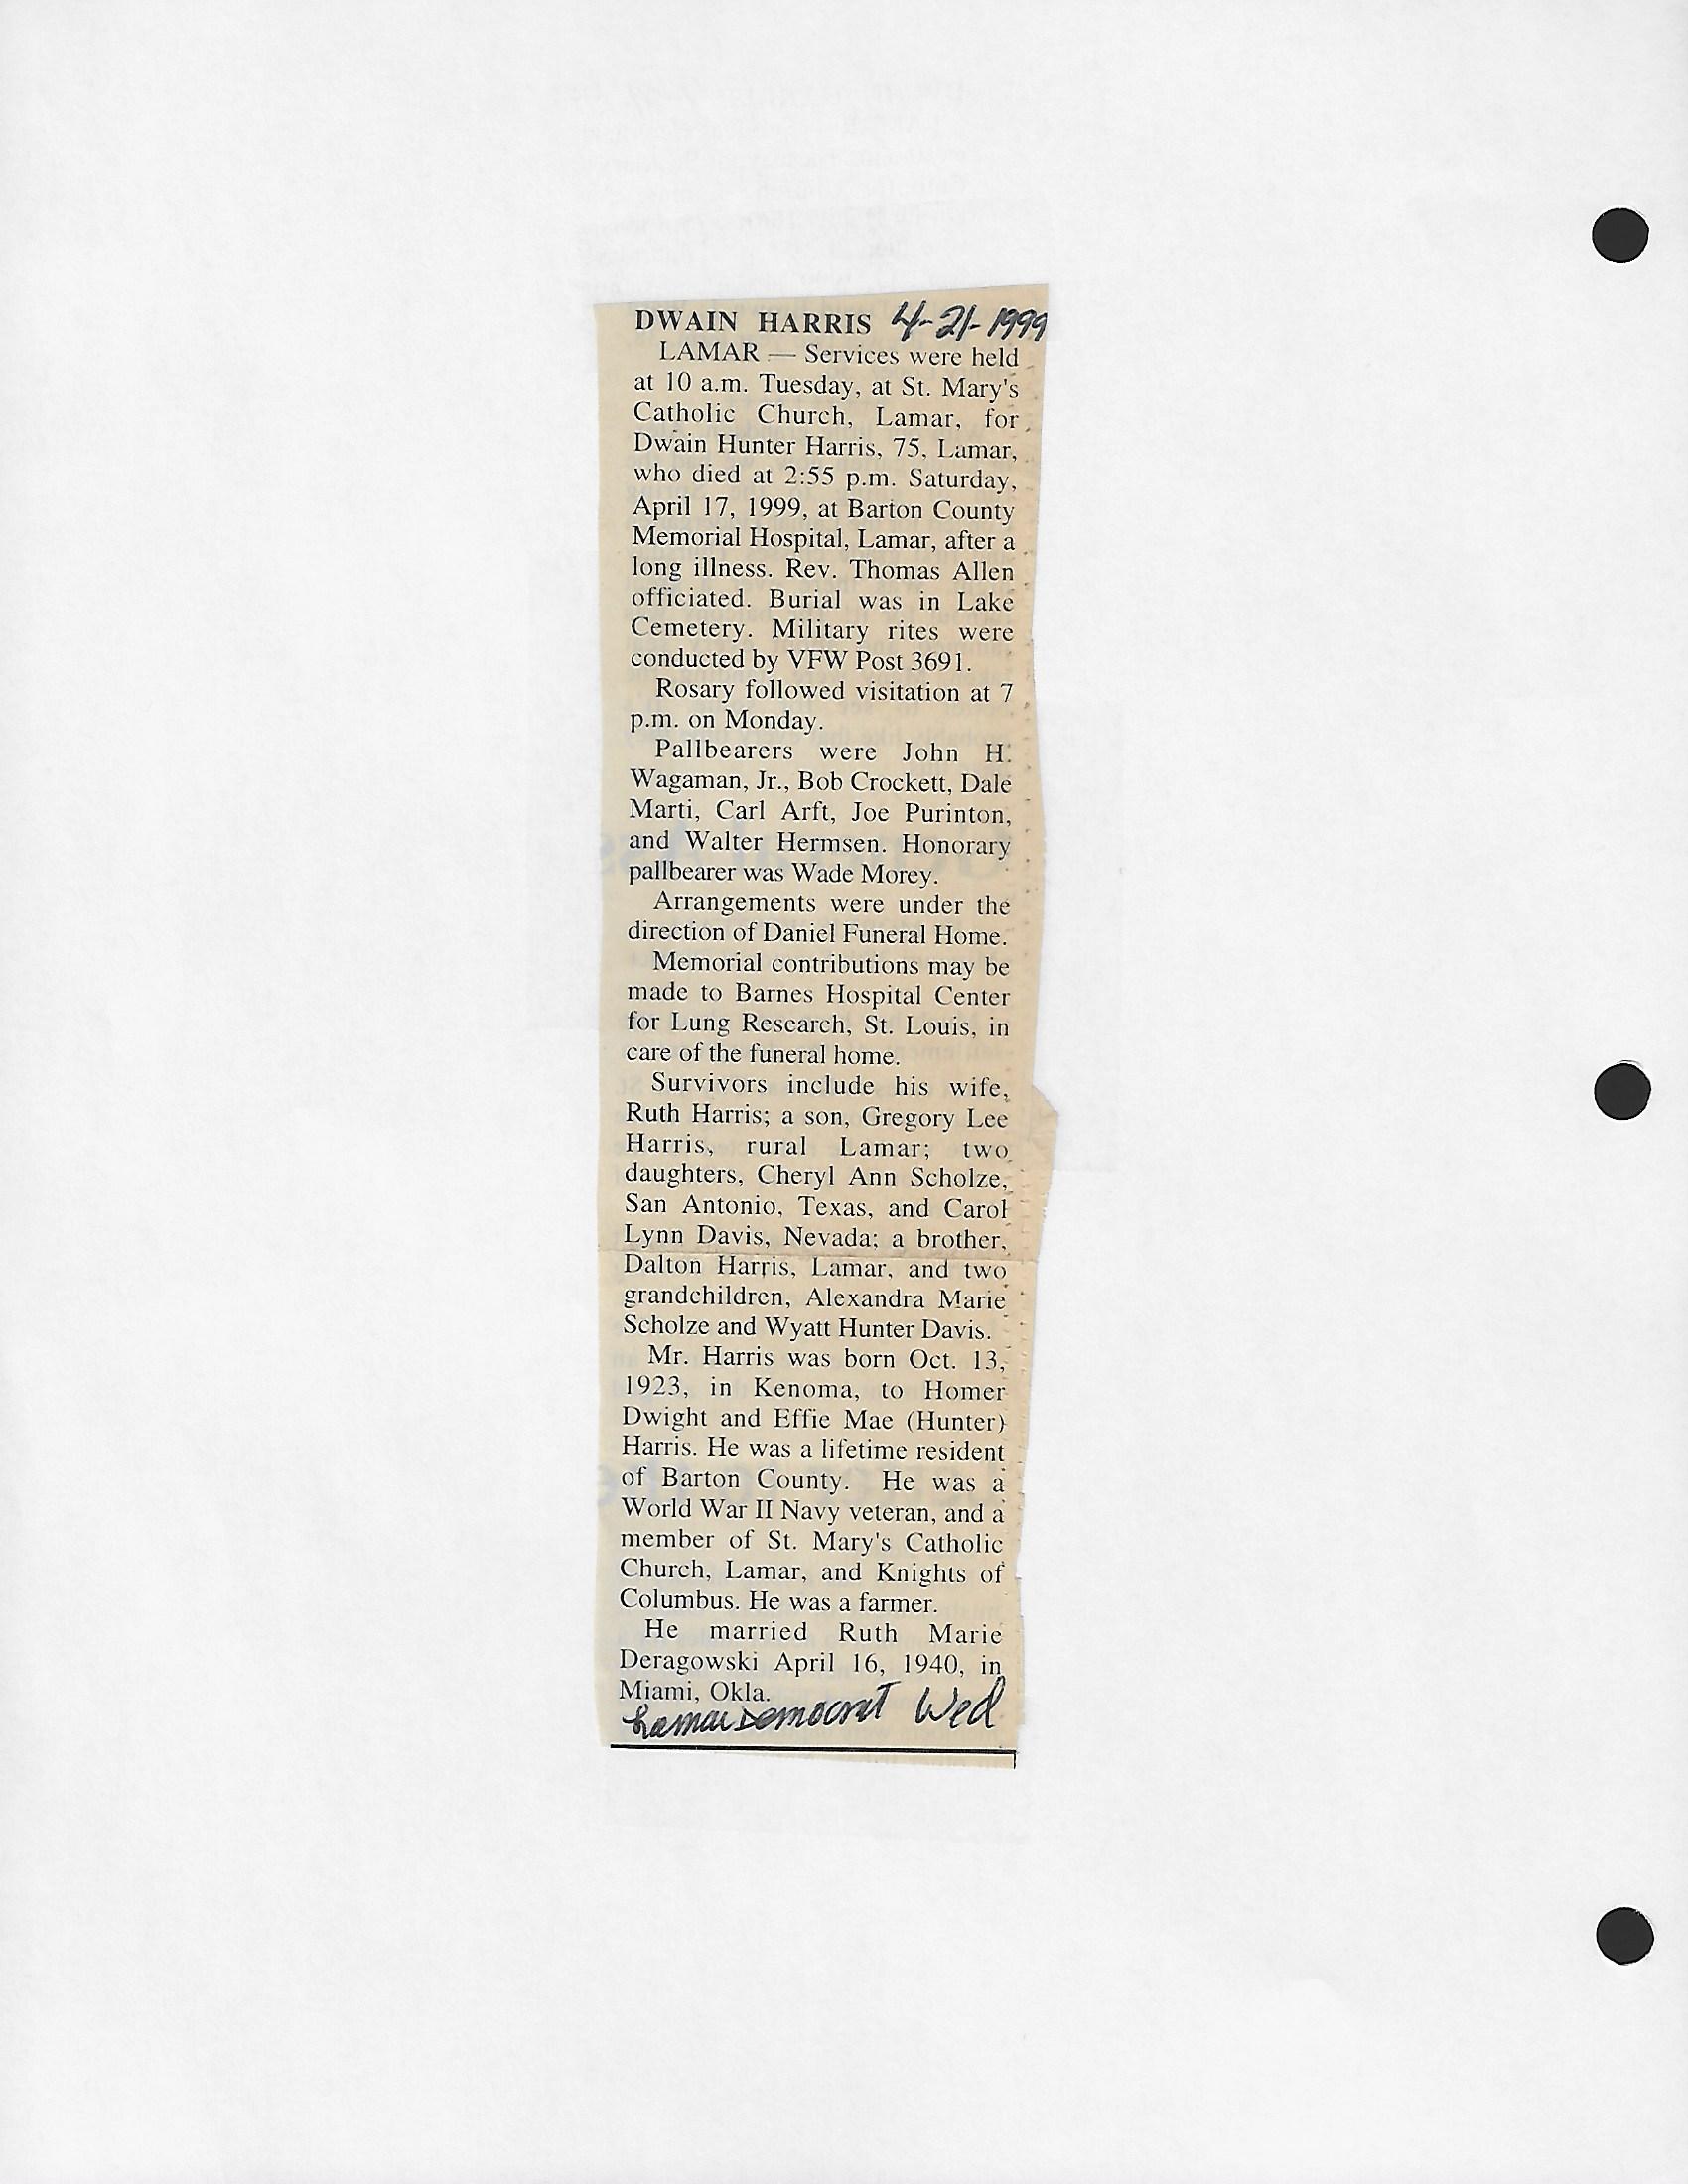 DWAIN HARRIS 4-21-1999
LAMAR — Services were held
at 10 a.m. Tuesday, at St. Mary's
Catholic Church, Lamar, for
Dwain Hunter Harris, 75, Lamar,
who died at 2:55 p.m. Saturday,
April 17, 1999, at Barton County
Memorial Hospital, Lamar, after a
long illness. Rev. Thomas Allen
officiated. Burial was in Lake
Cemetery. Military rites were
conducted by VFW Post 3691.
Rosary followed visitation at 7
p.m. on Monday.
Pallbearers were John H.
Wagaman, Jr., Bob Crockett, Dale
Marti, Carl Arft, Joe Purinton,
and Walter Hermsen. Honorary
pallbearer was Wade Morey.
Arrangements were under the
direction of Daniel Funeral Home.
Memorial contributions may be
made to Barnes Hospital Center
for Lung Research, St. Louis, in
care of the funeral home.
Survivors include his wife,
Ruth Harris; a son, Gregory Lee
Harris, rural Lamar; two
daughters, Cheryl Ann Scholze,
San Antonio, Texas, and Carol
Lynn Davis, Nevada; a brother,
Dalton Harris, Lamar, and two
grandchildren, Alexandra Marie
Scholze and Wyatt Hunter Davis.
Mr. Harris was born Oct. 13,
1923, in Kenoma, to Homer
Dwight and Effie Mae (Hunter)
Harris. He was a lifetime resident
of Barton County. He was a
World War II Navy veteran, and a
member of St. Mary's Catholic
Church, Lamar, and Knights of
Columbus. He was a farmer.
He married Ruth Marie
Deragowski April 16, 1940, in
Miami, Okla.
Lamar Democrat Wed